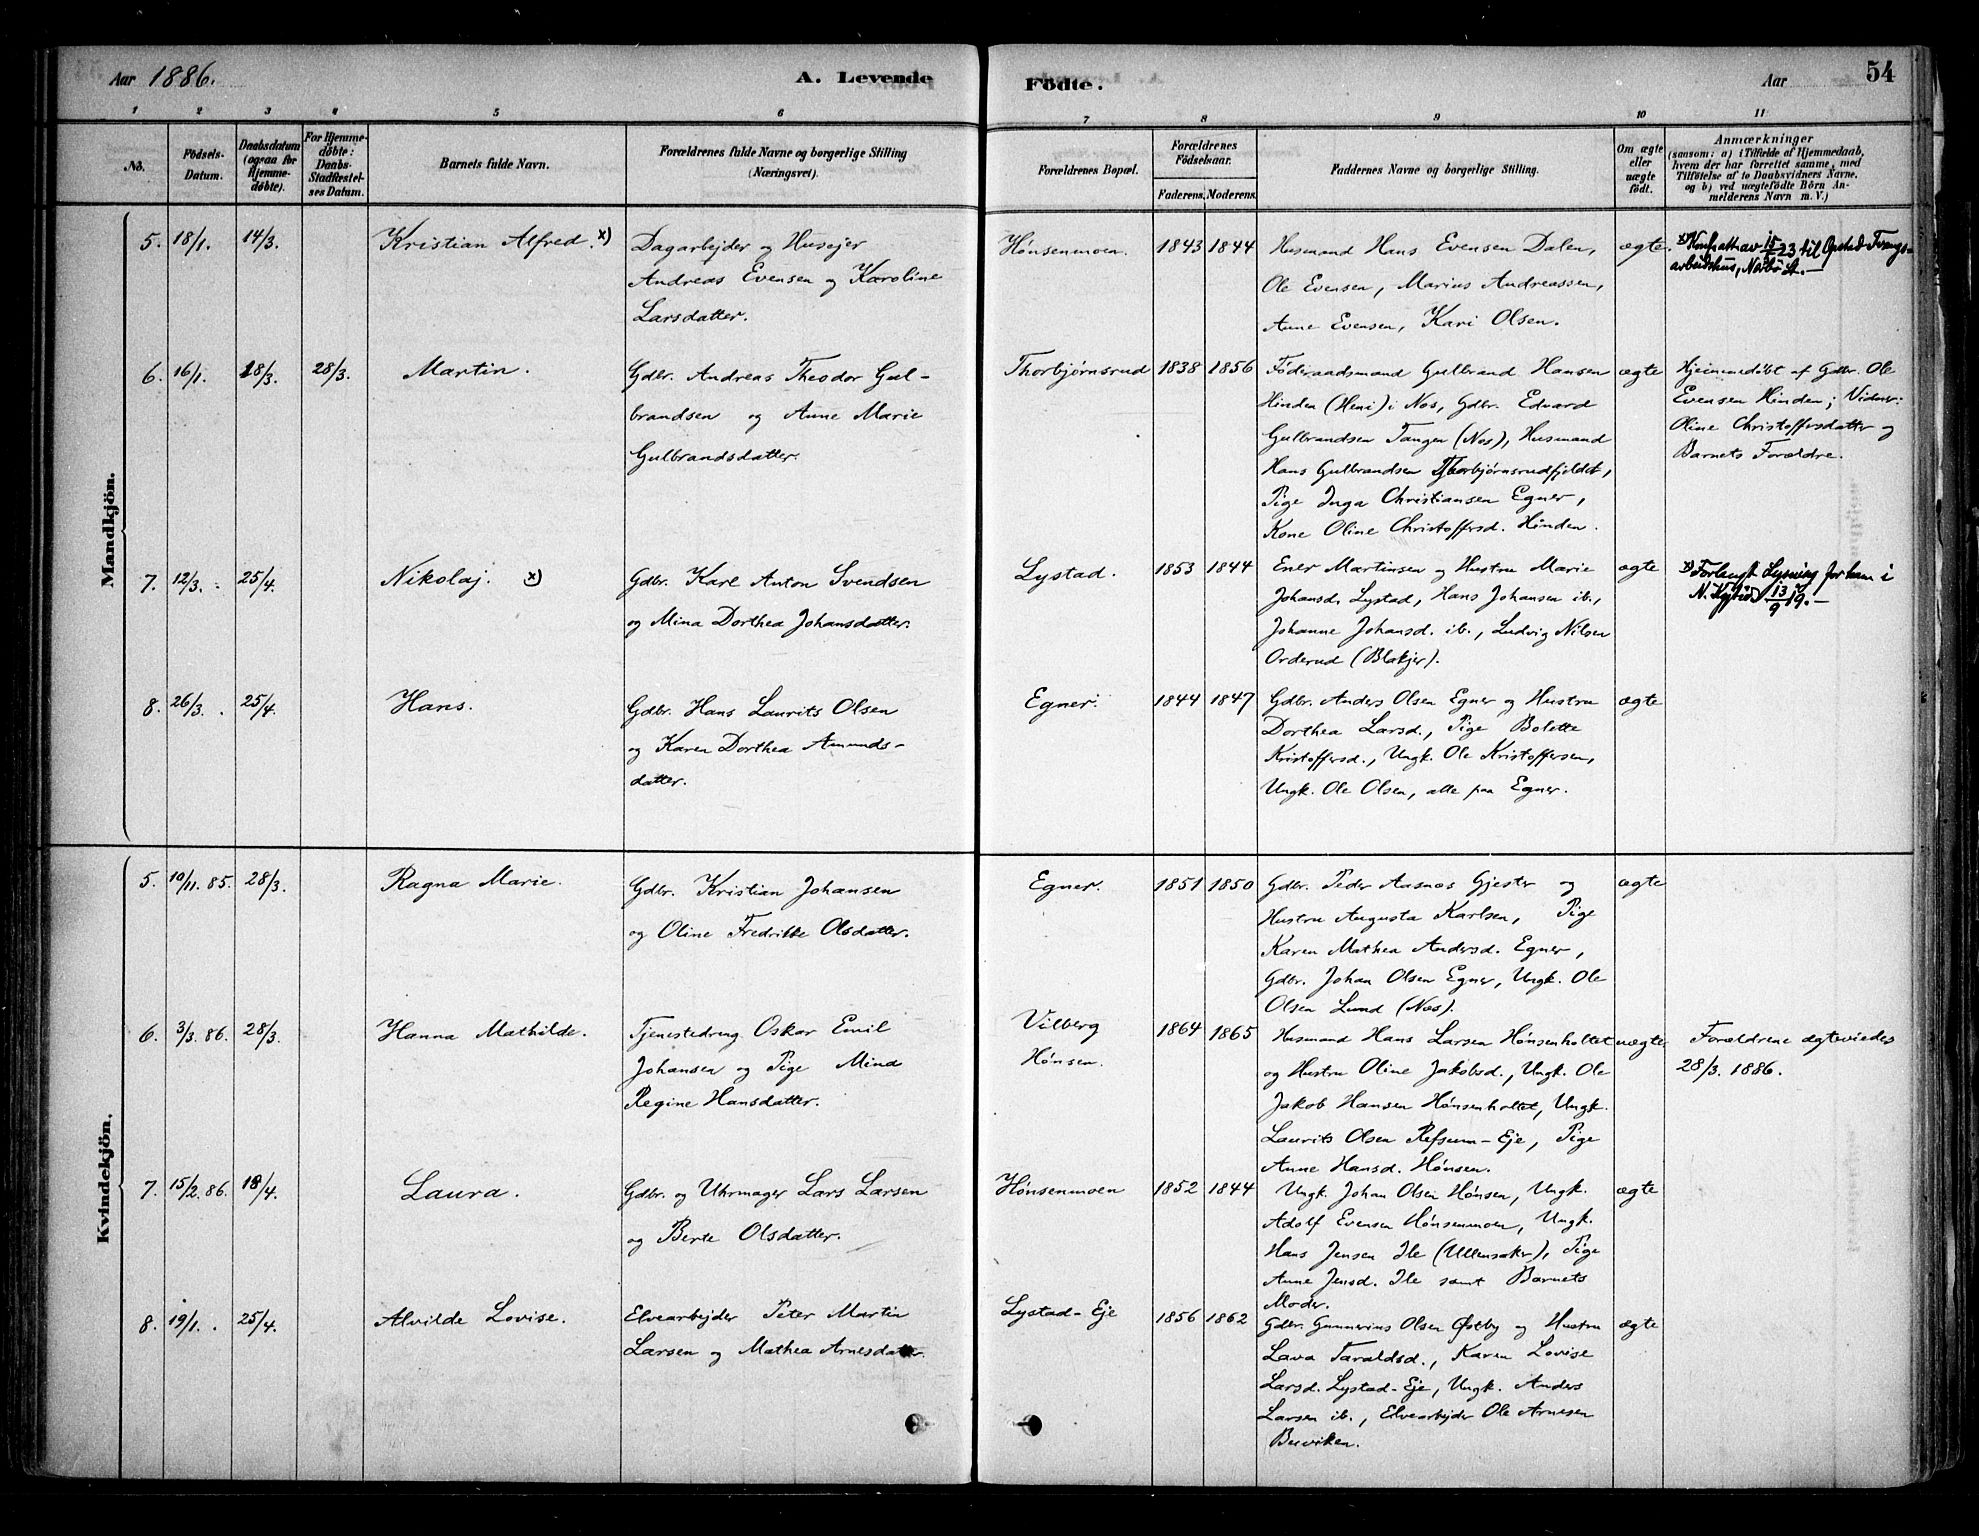 Aar 1886.
A. Levende
Födte.
Aar
54
1 2 3 4 5 6 7 8 9 10 11
No.
Födsels-
Datum.
Daabsdatum
(ogsaa for
Hjemme-
døbte).
For Hjemme-
døbte:
Daabs-
Stadfæstel-
ses Datum.
Barnets fulde Navn.
Forældrenes fulde Navne og borgerlige Stilling
(Næringsvei).
Forældrenes Bopæl.
Forældrenes
Födselsaar.
Faderens. Moderens.
Faddernes Navne og borgerlige Stilling.
Om ægte
eller
uægte
födt.
Anmærkninger
(sansom: a) i Tilfælde af Hjemmedaab,
hvem der har forrettet samme, med
Tilföielse af to Daabsvidners Navne,
og b) ved uægtefödte Börn An-
melderens Navn m. V.)
Mandkjön.
5. 18/1. 14/3. Kristian Alfred. x)
Dagarbejder og Husejer
Andreas Evensen og Karoline
Larsdatter.
Hónsenmoen. 1843 1844
Husmand Hans Evensen Dalen,
Ole Evensen, Marius Andreassen,
Anne Evensen, Kari Olsen.
ægte.
x) Konf.attav 15/5 23 til Opstad Tvangs-
arbeidshus, Nærbø St. –
6. 16/1. 28/3. 28/3. Martin.
Gdbr. Andreas Theodor Gul-
brandsen og Anne Marie
Gulbrandsdatter.
Thorbjørnsrud 1838 1856
Føderaadsmand Gulbrand Hansen
Hinden (Heni) i Nes, Gdbr. Edvard
Gulbrandsen Tangen (Nes), Husmand
Hans Gulbrandsen Thorbjørnsrudfjeldet,
Pige Inga Christiansen Egner,
Kone Oline Christoffersd. Hinden.
ægte
Hjemmedøbt af Gdbr. Ole
Evensen Hinden; Vidner:
Oline Christoffersdatter og
Barnets Forældre.
7. 12/3. 25/4. Nikolaj. x)
Gdbr. Karl Anton Svendsen
og Mina Dorthea Johansdatter.
Lystad. 1853 1844
Ener Martinsen og Hustru Marie
Johansd. Lystad, Hans Johansen ib.,
Johanne Johansd. ib., Ludvig Nilsen
Orderud (Blakjer).
ægte
x) Forlangt Lysning for ham i
N. 13/9 19. –
8. 26/3. 25/4. Hans.
Gdbr. Hans Laurits Olsen
og Karen Dorthea Amunds-
datter.
Egner. 1844 1847
Gdbr. Anders Olsen Egner og Hustru
Dorthea Larsd., Pige Bolette
Kristoffersd., Ungk. Ole Kristoffersen,
Ungk. Ole Olsen, alle paa Egner.
ægte
Kvindekjön.
5. 10/11. 85. 28/3. Ragna Marie.
Gdbr. Kristian Johansen
og Oline Fredrikke Olsdatter.
Egner. 1851 1850
Gdbr. Peder Aasnæs Gjester og
Hustru Augusta Karlsen, Pige
Karen Mathea Andersd. Egner,
Gdbr. Johan Olsen Egner, Ungk. Ole
Olsen Lund (Næs).
ægte
6. 3/3. 86. 28/3. Hanna Mathilde.
Tjenestedreng Oskar Emil
Johansen og Pige Mina
Regine Hansdatter.
Vilberg
Hónsen.
1864 1865
Husmand Hans Larsen Hónsenholtet
og Hustru Oline Jakobsd., Ungk. Ole
Jakob Hansen Hónsenholtet, Ungk.
Laurits Olsen Refsum-Eje, Pige
Anne Hansd. Hónsen.
uægte
Forældrene ægteviedes
28/3. 1886.
7. 15/2. 86. 18/4. Laura.
Gdbr. og Uhrmager Lars Larsen
og Berte Olsdatter.
Hónsenmoen 1852 1844
Ungk. Johan Olsen Hónsen, Ungk.
Adolf Evensen Hónsenmoen, Ungk.
Hans Jensen Ile (Ullensaker), Pige
Anne Jensd. Ile samt Barnets
Moder.
ægte
8. 19/1. 25/4. Alvilde Lovise.
Elvearbejder Peter Martin
Larsen og Mathea Arnesdatter.
Lystad-Eje 1856 1862
Gdbr. Gunnerius Olsen Østby og Hustru
Lava Taraldsd., Karen Lovise
Larsd. Lystad-Eje, Ungk. Anders
Larsen ib., Elvearbejder Ole Arnesen
Busviken.
ægte